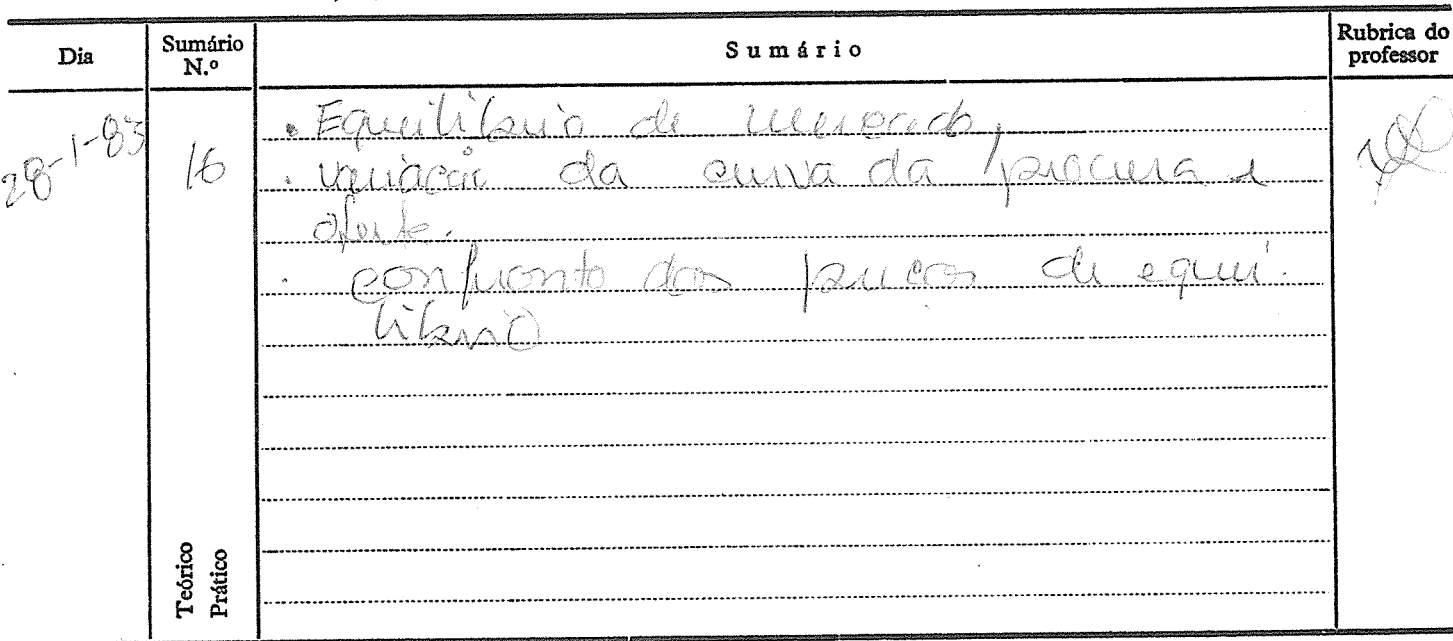 Dia Sumário N.º Sumário Rubrica do professor
28-1-83 16 . Equilíbrio de mercado,
. variação da curva da procura e
oferta.
. confronto dos preços de equi-
líbrio
Teórico
Prático